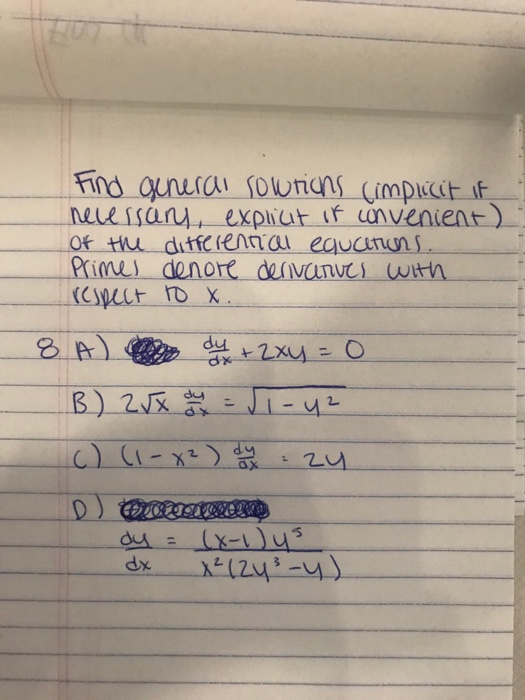 Find general solutions (implicit if
necessary, explicit if convenient)
of the differential equations.
Primes denote derivatives with
respect to x.
8 A) dy/dx + 2xy = 0
B) 2√x dy/dx = √(1-y²)
C) (1-x²) dy/dx = 2y
D)
dy/dx = (x-1)y⁵ / x²(2y³-y)